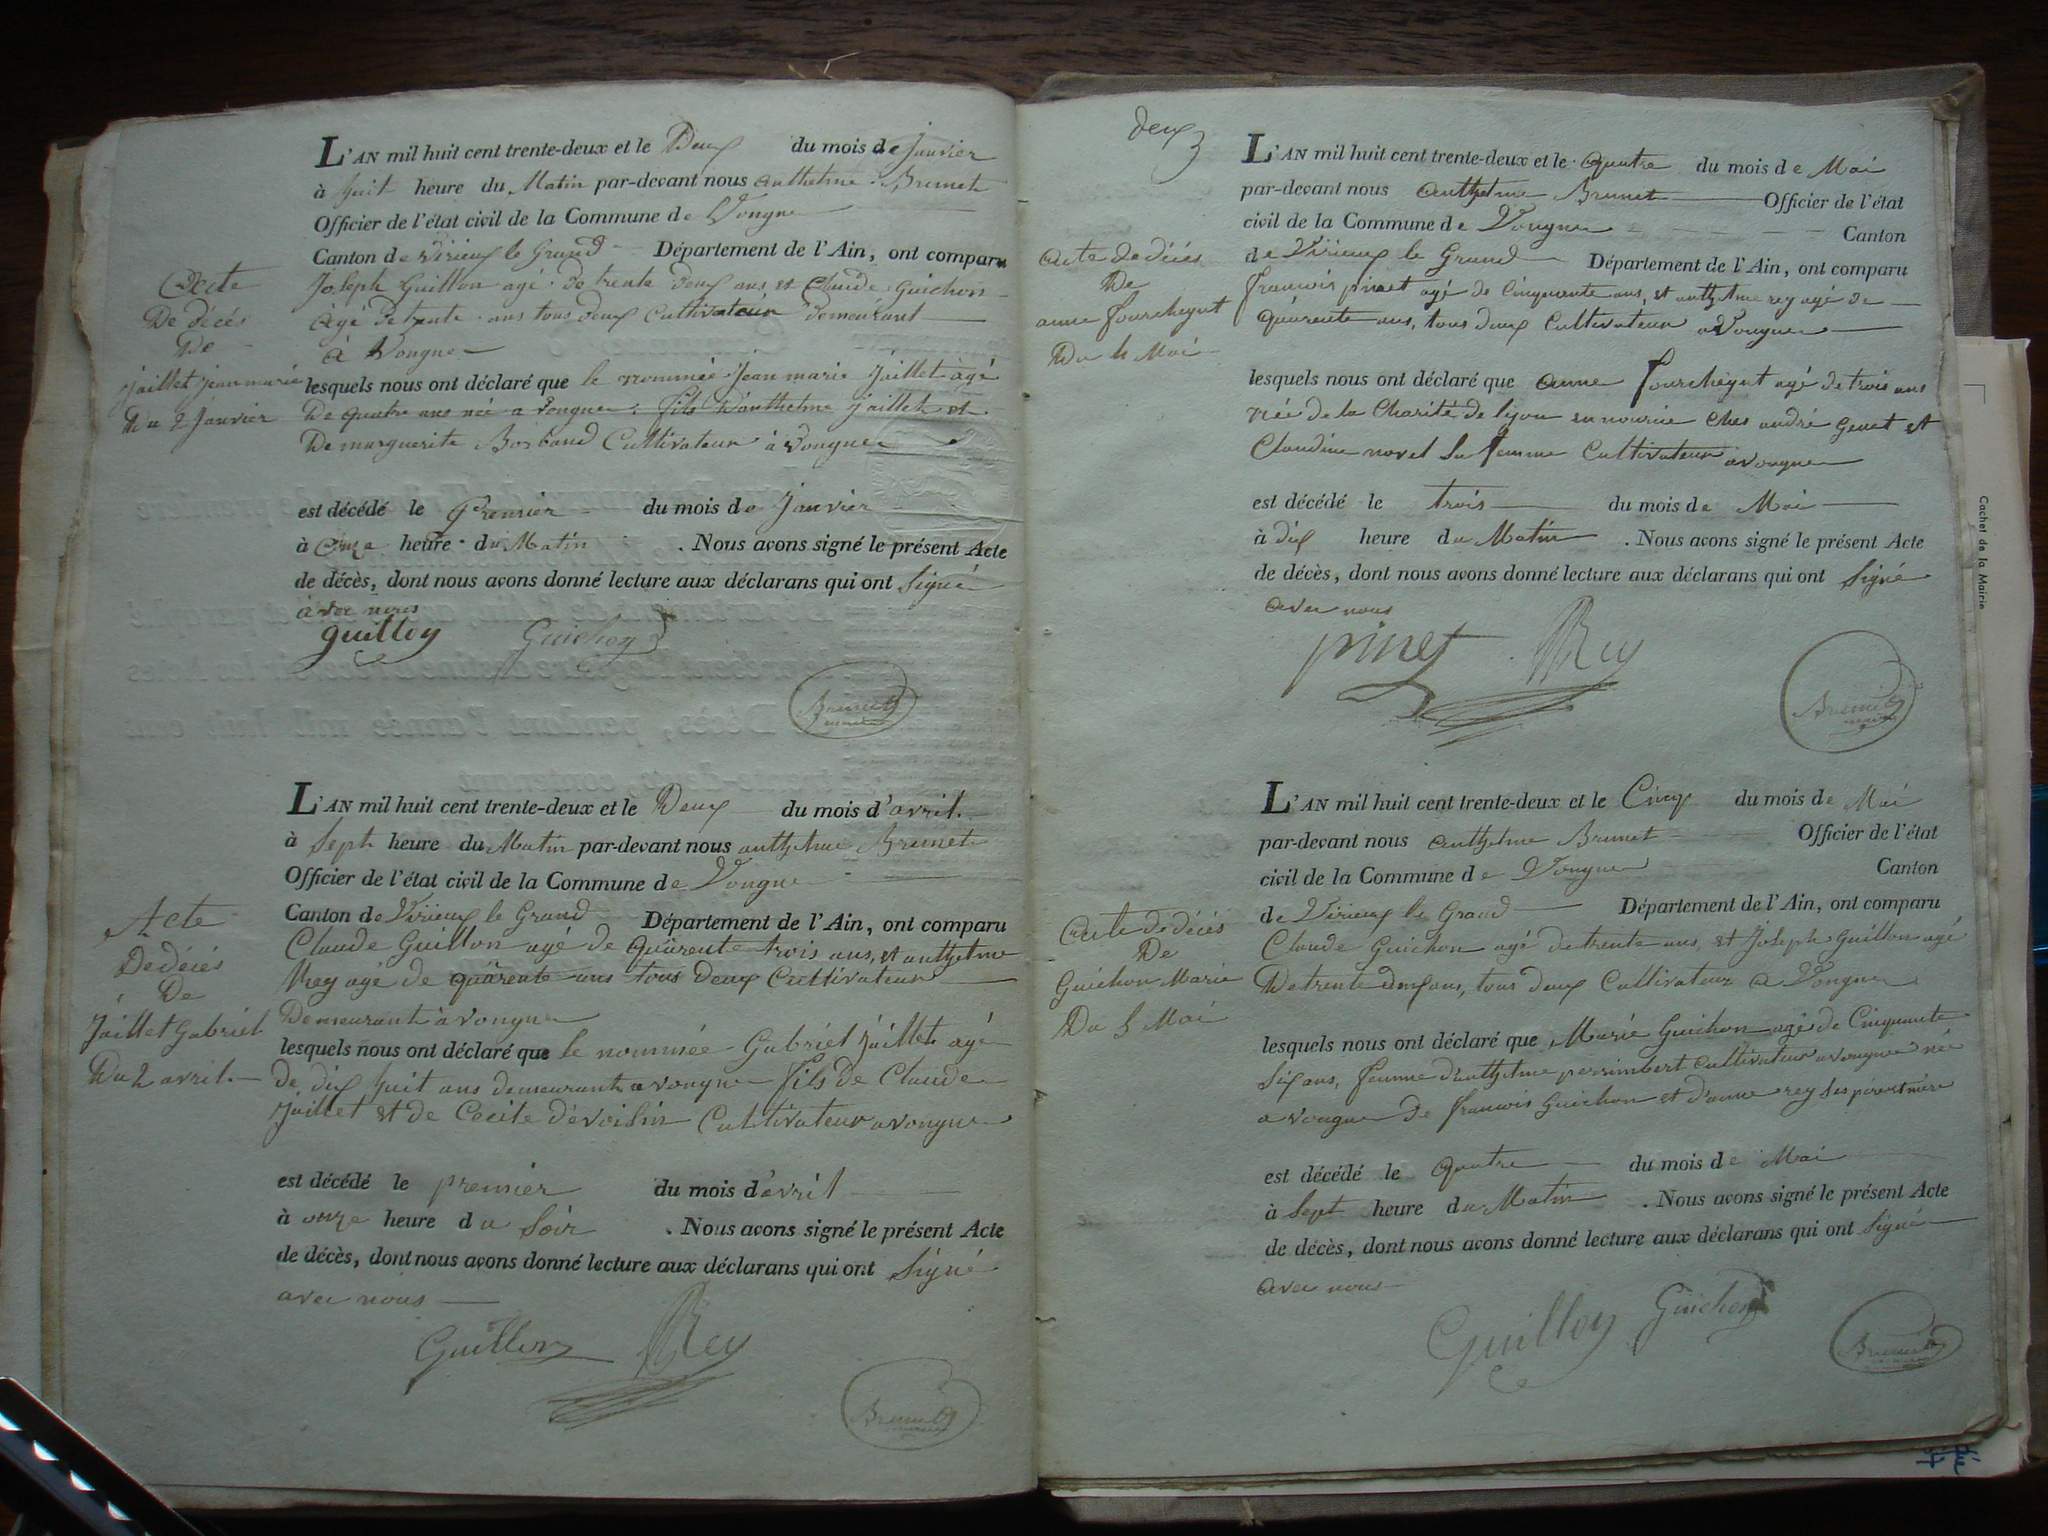 Acte
De décés
De
jaillet jean marie
Du 2 janvier
L'AN mil huit cent trente-deux et le Deux du mois de janvier
à huit heure du Matin par-devant nous anthelme Brunet
Officier de l'état civil de la Commune de Vongne
Canton de Virieux le Grand Département de l'Ain, ont comparu
Joseph Guillon agé de trente deux ans et Claude Guichon
agé de trente ans tous deux Cultivateur demeurant
à Vongne
lesquels nous ont déclaré que le nommée jean marie jaillet agé
De quatre ans née a vongne fils D'anthelme jaillet et
De marguerite Cultivateur à vongne
est décédé le Premier du mois de janvier
à onze heure du Matin . Nous avons signé le présent Acte
de décès, dont nous avons donné lecture aux déclarans qui ont Signé
avec nous
guillon Guichon
Brunet
Acte
De décés
De
Jaillet Gabriel
Du 2 avril
L'AN mil huit cent trente-deux et le Deux du mois d'avril
à Sept heure du Matin par-devant nous anthelme Brunet
Officier de l'état civil de la Commune de Vongne
Canton de Virieux le Grand Département de l'Ain, ont comparu
Claude Guillon agé de quarente trois ans, et anthelme
Rey agé de quarente ans tous Deux Cultivateur
Demeurant à vongne
lesquels nous ont déclaré que le nommée Gabriel jaillet agé
de dix huit ans demeurant a vongne fils de Claude
Jaillet et de Cecile dévoisin Cultivateur a vongne
est décédé le premier du mois d'avril
à onze heure du Soir . Nous avons signé le présent Acte
de décès, dont nous avons donné lecture aux déclarans qui ont Signé
avec nous
Guillon Rey
Brunet
deux
acte de décés
De
anne fourcheyut
Du 4 Mai
L'AN mil huit cent trente-deux et le quatre du mois de Mai
par-devant nous anthelme Brunet Officier de l'état
civil de la Commune de Vongne Canton
de Virieux le Grand Département de l'Ain, ont comparu
francois pinet agé de Cinquante ans, et anthelme rey agé de
quarente ans, tous deux Cultivateur a Vongne
lesquels nous ont déclaré que anne fourcheyut agé de trois ans
née de la Charité de lyon en nourie ches andré Genet et
Claudine novel Sa femme Cultivateur a vongne
est décédé le trois du mois de Mai
à dix heure du Matin . Nous avons signé le présent Acte
de décès, dont nous avons donné lecture aux déclarans qui ont Signé
avec nous
pinet Rey
Brunet
acte de décés
De
Guichon Marie
Du 5 Mai
L'AN mil huit cent trente-deux et le Cinq du mois de Mai
par-devant nous anthelme Brunet Officier de l'état
civil de la Commune de Vongne Canton
de Virieux le Grand Département de l'Ain, ont comparu
Claude Guichon agé de trente ans, et Joseph Guillon agé
De trente deux ans, tous deux Cultivateur a Vongne
lesquels nous ont déclaré que Marie Guichon agé de Cinquante
Six ans, femme d'anthelme perrimbert Cultivateur a vongne née
a vongne de francois Guichon et d'anne rey Ses père et mère
est décédé le quatre du mois de Mai
à Sept heure du Matin . Nous avons signé le présent Acte
de décès, dont nous avons donné lecture aux déclarans qui ont Signé
avec nous
Guillon Guichon
Brunet
Cachet de la Mairie